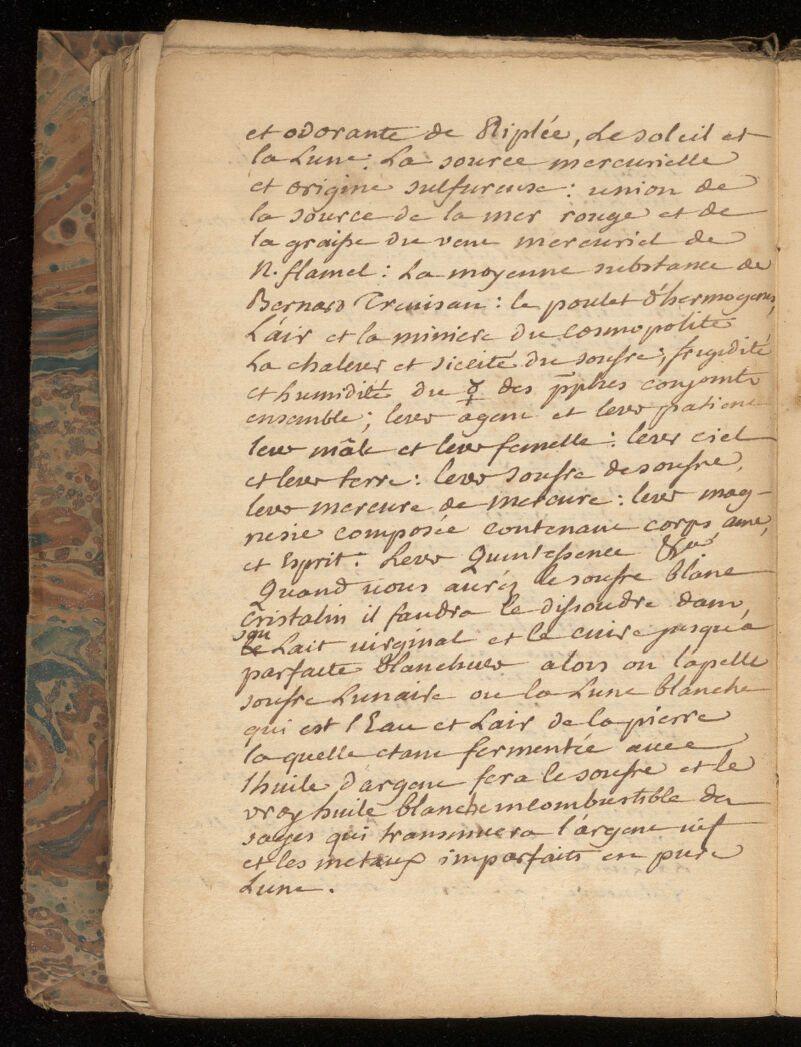 et odorante de Riplée, Le soleil et
la Lune: La source mercurielle
et origine sulfureuse: union de
la source de la mer rouge et de
la graisse du vene mercuriel de
N. flamel: La moyenne substance de
Bernard Trevisan: le poulet d'hermogene,
L'air et la miniere du Cosmopolite
La chaleur et siccité du soufre; frigidité
et humidité du ☿ des pphes conjoints
ensemble; leur agent et leur patient
leur mâle et leur femelle: leur ciel
et leur terre: leur soufre de soufre,
leur mercure de mercure: leur mag-
nesie composée contenant corps, ame,
et Esprit: Leur Quintessence &ca.
Quand vous auréz le soufre blanc
Cristalin il faudra le dissoudre dans
son Lait virginal et le cuire jusqu'à
parfaite blancheur alors on lapelle
soufre Lunaire ou la Lune blanche
qui est l'Eau et Lair de la pierre
la quelle etant fermentée avec
l'huile d'argent fera le soufre et le
vray huile blanche incombustible des
sages qui transmuera l'argent vif
et les metaux imparfaits en pure
Lune.